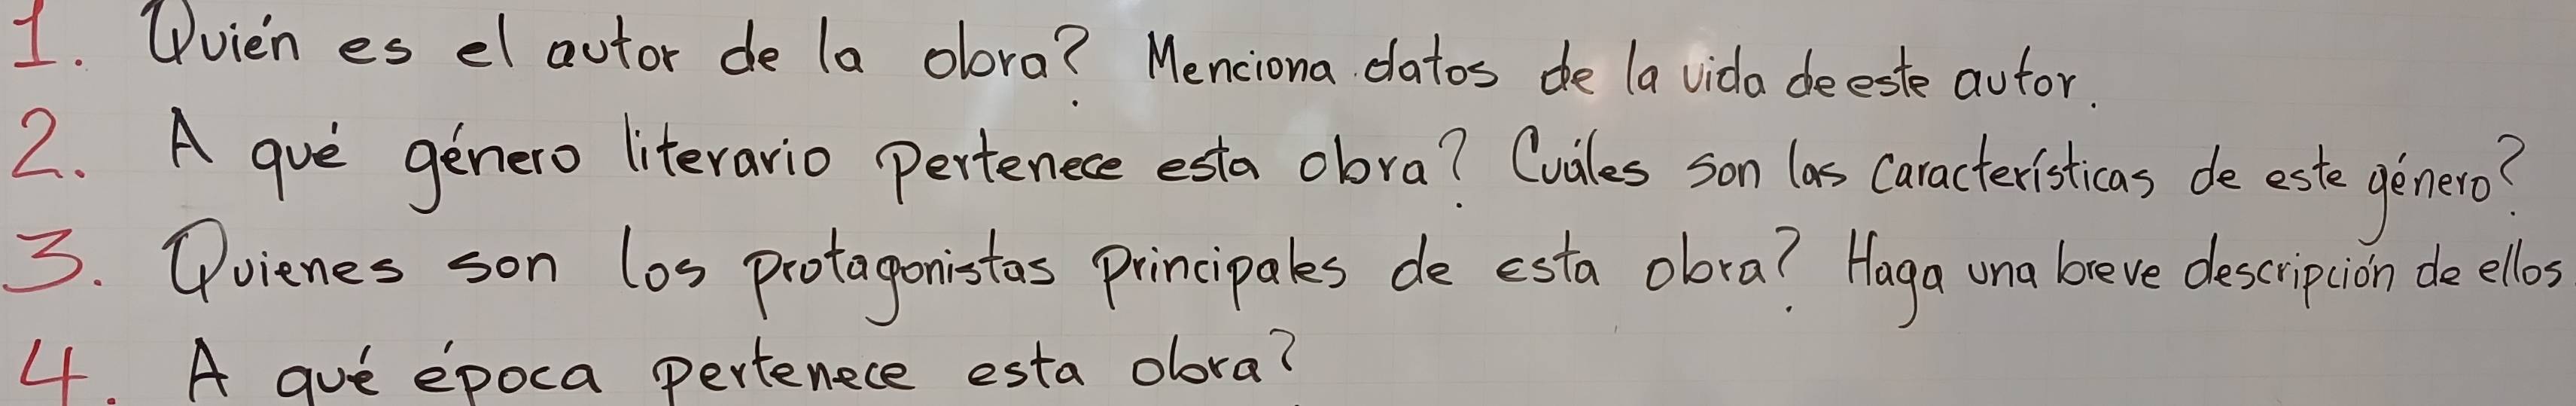 1. Quién es el autor de la obra? Menciona datos de la vida de este autor.
2. A qué género literario pertenece esta obra? Cuáles son las características de este género?
3. Quienes son los protagonistas principales de esta obra? Haga una breve descripción de ellos
4. A qué época pertenece esta obra?